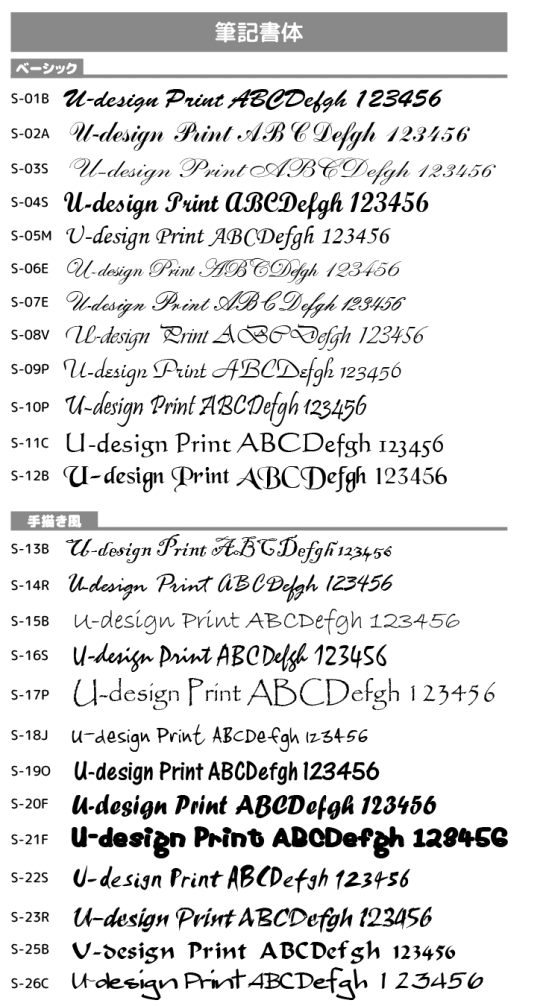 筆記書体
ベーシック
S-01B U-design Print ABCDefgh 123456
S-02A U-design Print ABCDefgh 123456
S-03S U-design Print ABCDefgh 123456
S-04S U-design Print ABCDefgh 123456
S-05M U-design Print ABCDefgh 123456
S-06E U-design Print ABCDefgh 123456
S-07E U-design Print ABCDefgh 123456
S-08V U-design Print ABCDefgh 123456
S-09P U-design Print ABCDefgh 123456
S-10P U-design Print ABCDefgh 123456
S-11C U-design Print ABCDefgh 123456
S-12B U-design Print ABCDefgh 123456
手描き風
S-13B U-design Print ABCDefgh 123456
S-14R U-design Print ABCDefgh 123456
S-15B U-design Print ABCDefgh 123456
S-16S U-design Print ABCDefgh 123456
S-17P U-design Print ABCDefgh 123456
S-18J U-design Print ABCDefgh 123456
S-19O U-design Print ABCDefgh 123456
S-20F U-design Print ABCDefgh 123456
S-21F U-design Print ABCDefgh 123456
S-22S U-design Print ABCDefgh 123456
S-23R U-design Print ABCDefgh 123456
S-25B U-design Print ABCDefgh 123456
S-26C U-design Print ABCDefgh 123456